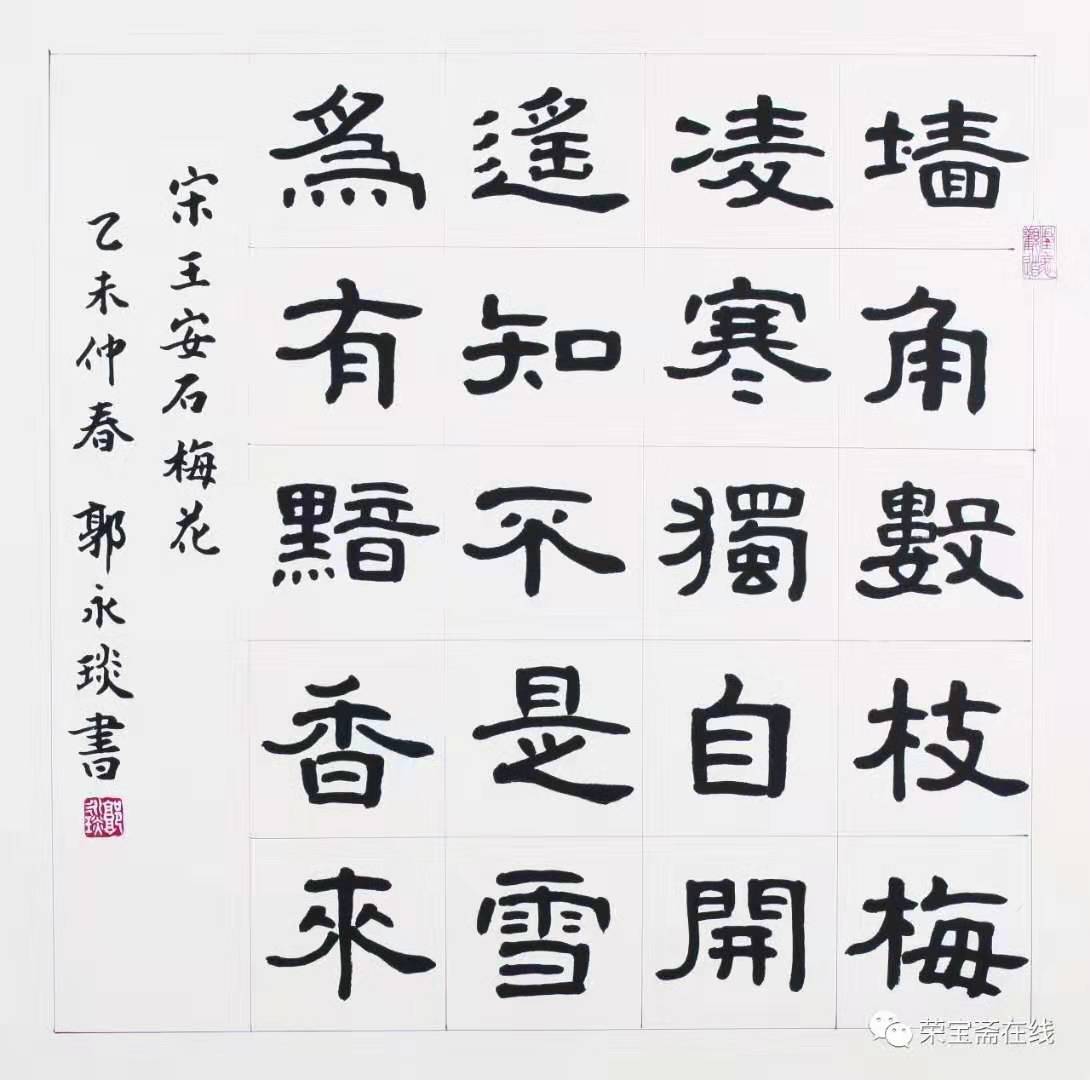 墙角數枝梅
凌寒獨自開
遥知不是雪
為有黯香來
宋王安石梅花
乙未仲春 郭永琰書
郭永琰
荣宝斋在线